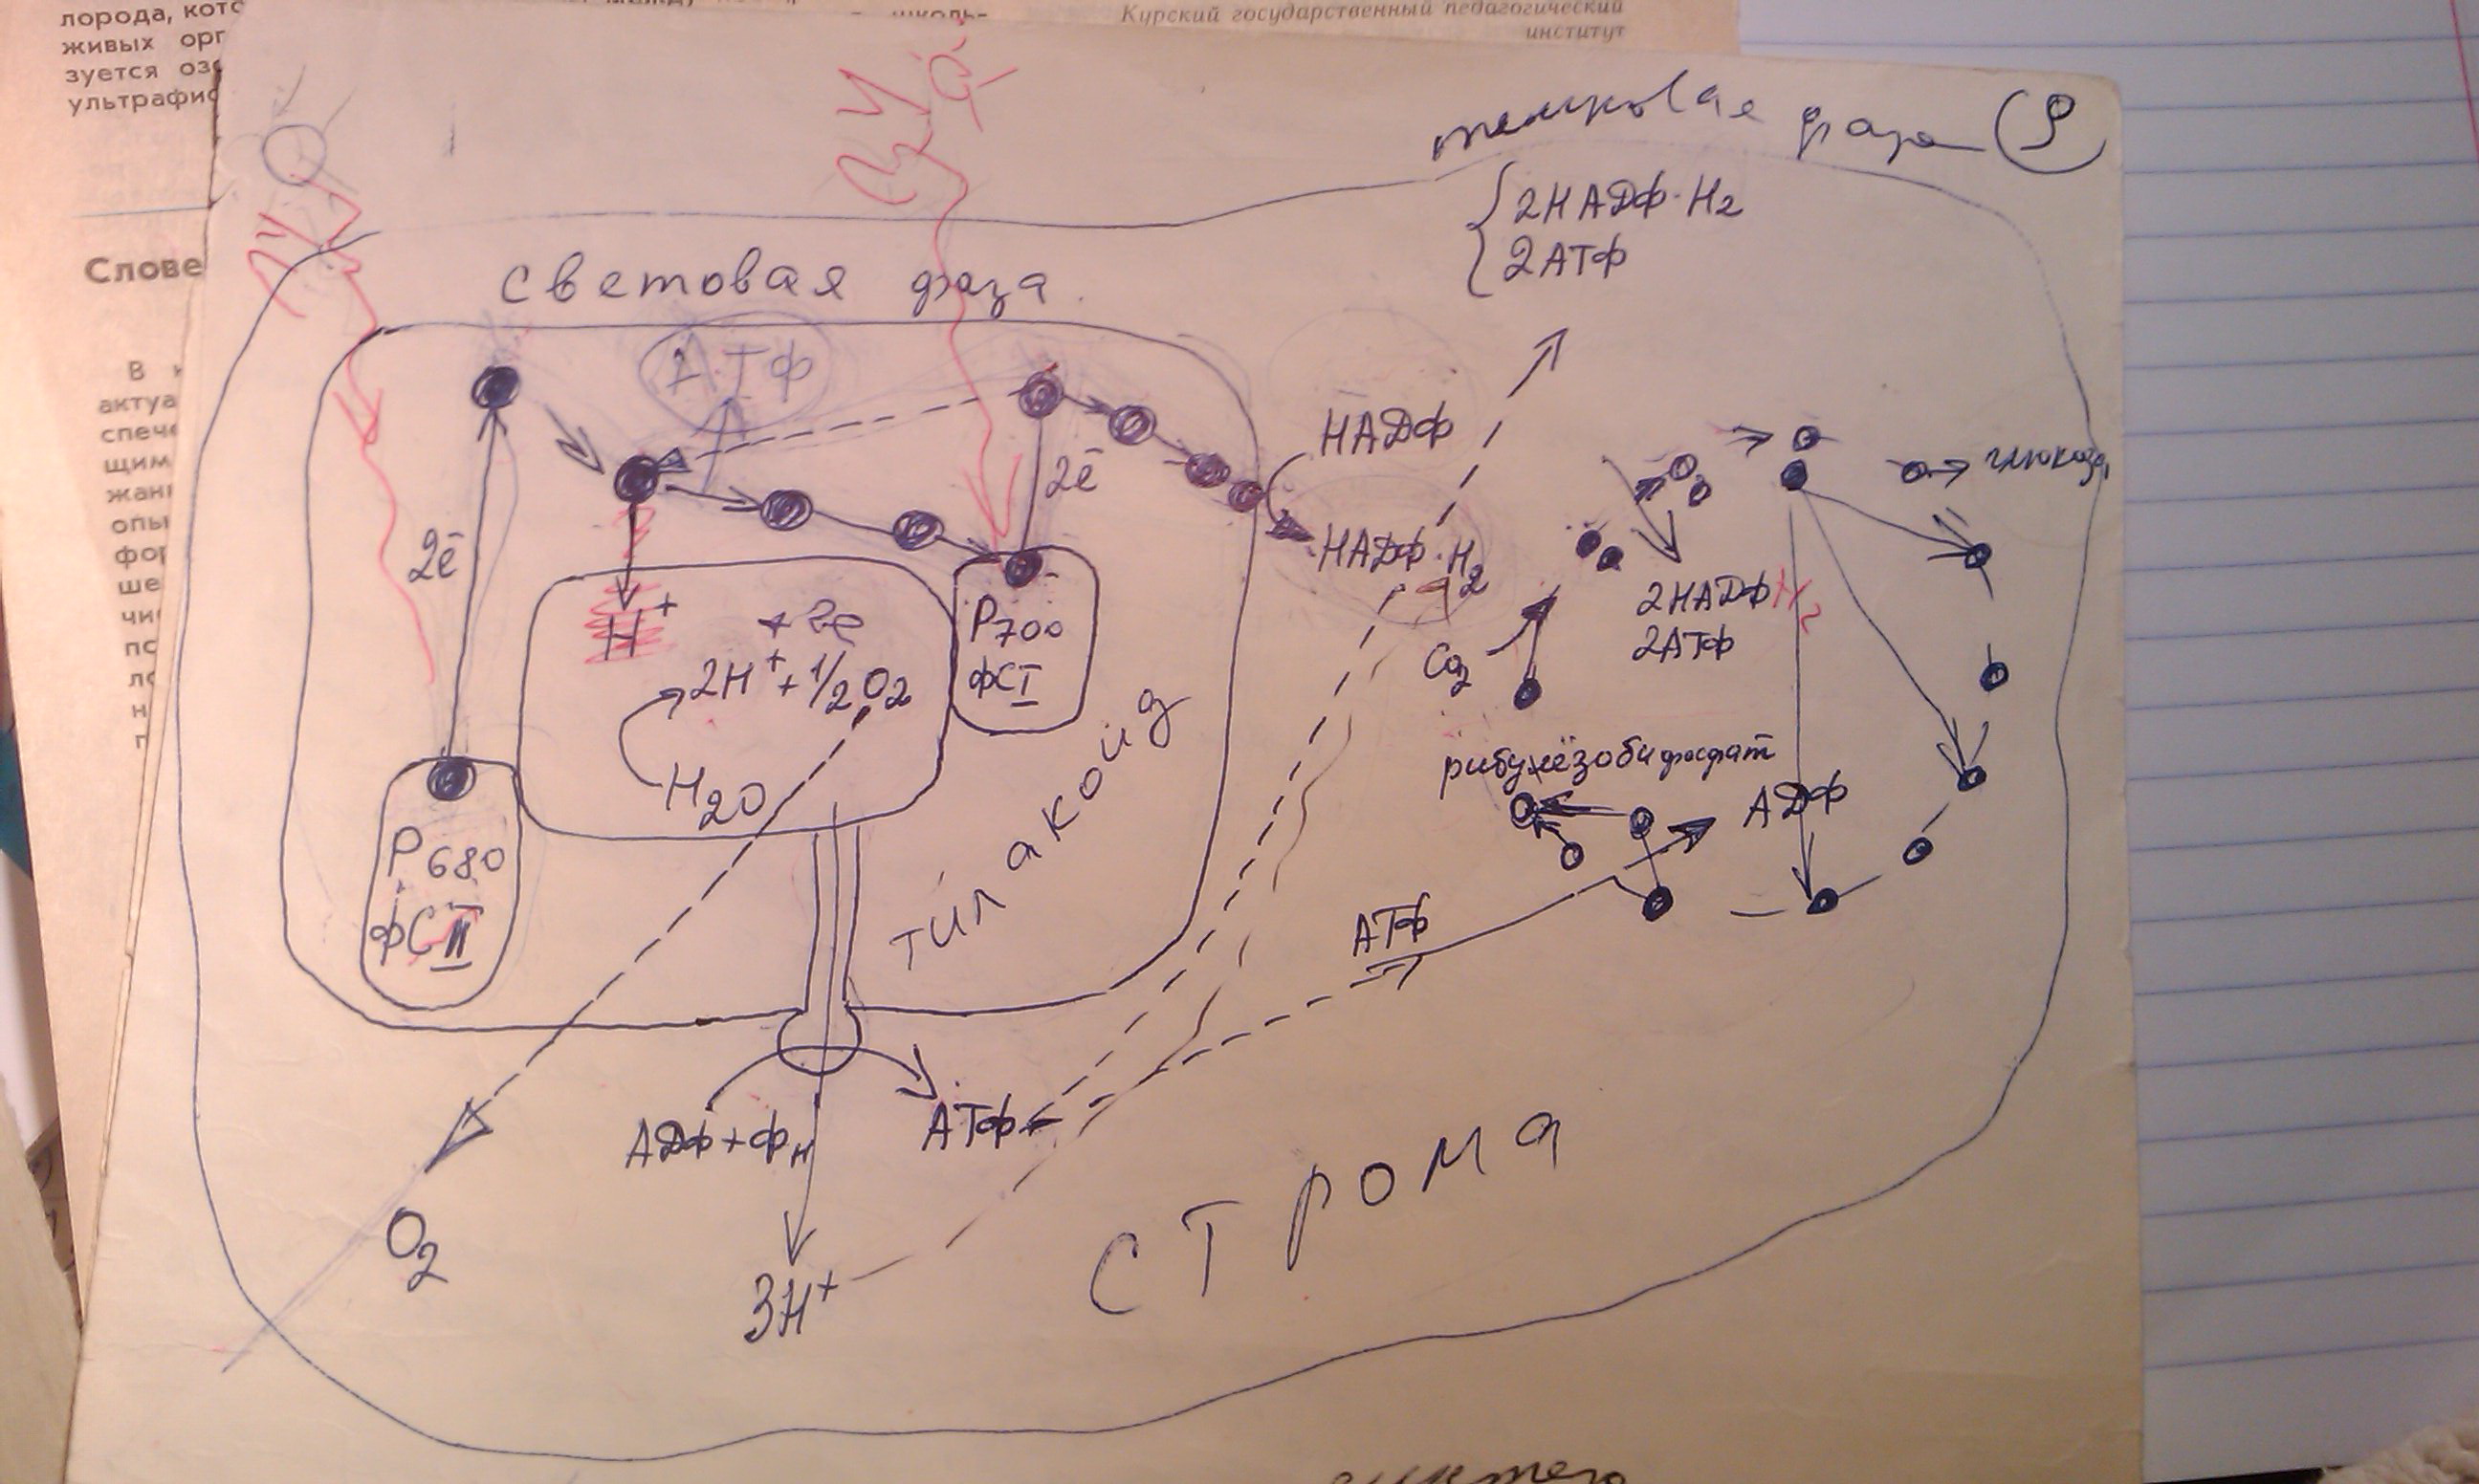 лорода, кото
живых орг
зуется озо
ультрафио
школь-
Курский государственный педагогический
институт
Слове
В
актуа
спече
щим
жани
опы
фор
ше
чи
по
темновая фаза 9
2НАДФ·H2
2АТФ
световая фаза
АТФ
НАДФ
НАДФ·H2
2ē
2ē
глюкоза
H+
+2e
2H+ + 1/2O2
H2O
P700
ФС I
P680
ФС II
тилакоид
CO2
2НАДФH2
2АТФ
рибулёзобифосфат
АДФ
АТФ
АДФ+Фн
АТФ
O2
3H+
СТРОМА